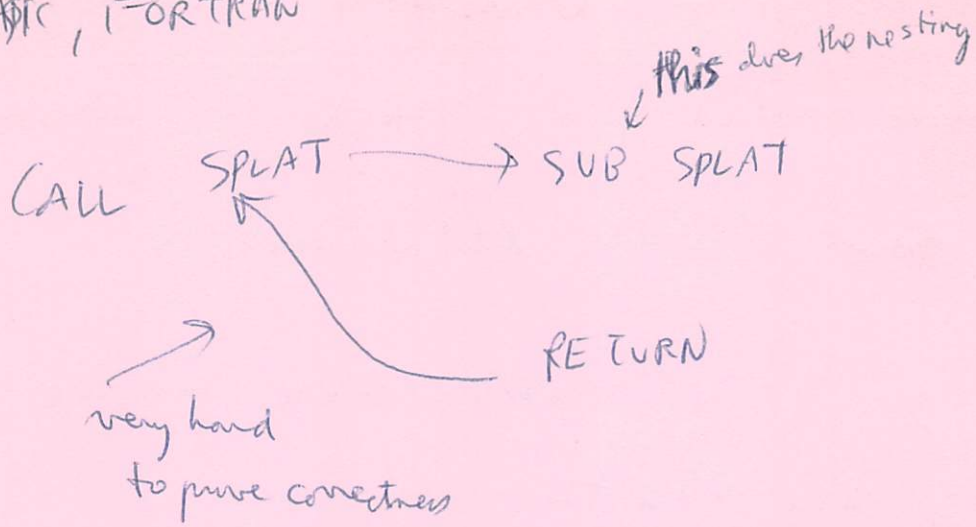 , FORTRAN
this does the nesting
CALL SPLAT SUB SPLAT
RETURN
very hard
to prove correctness